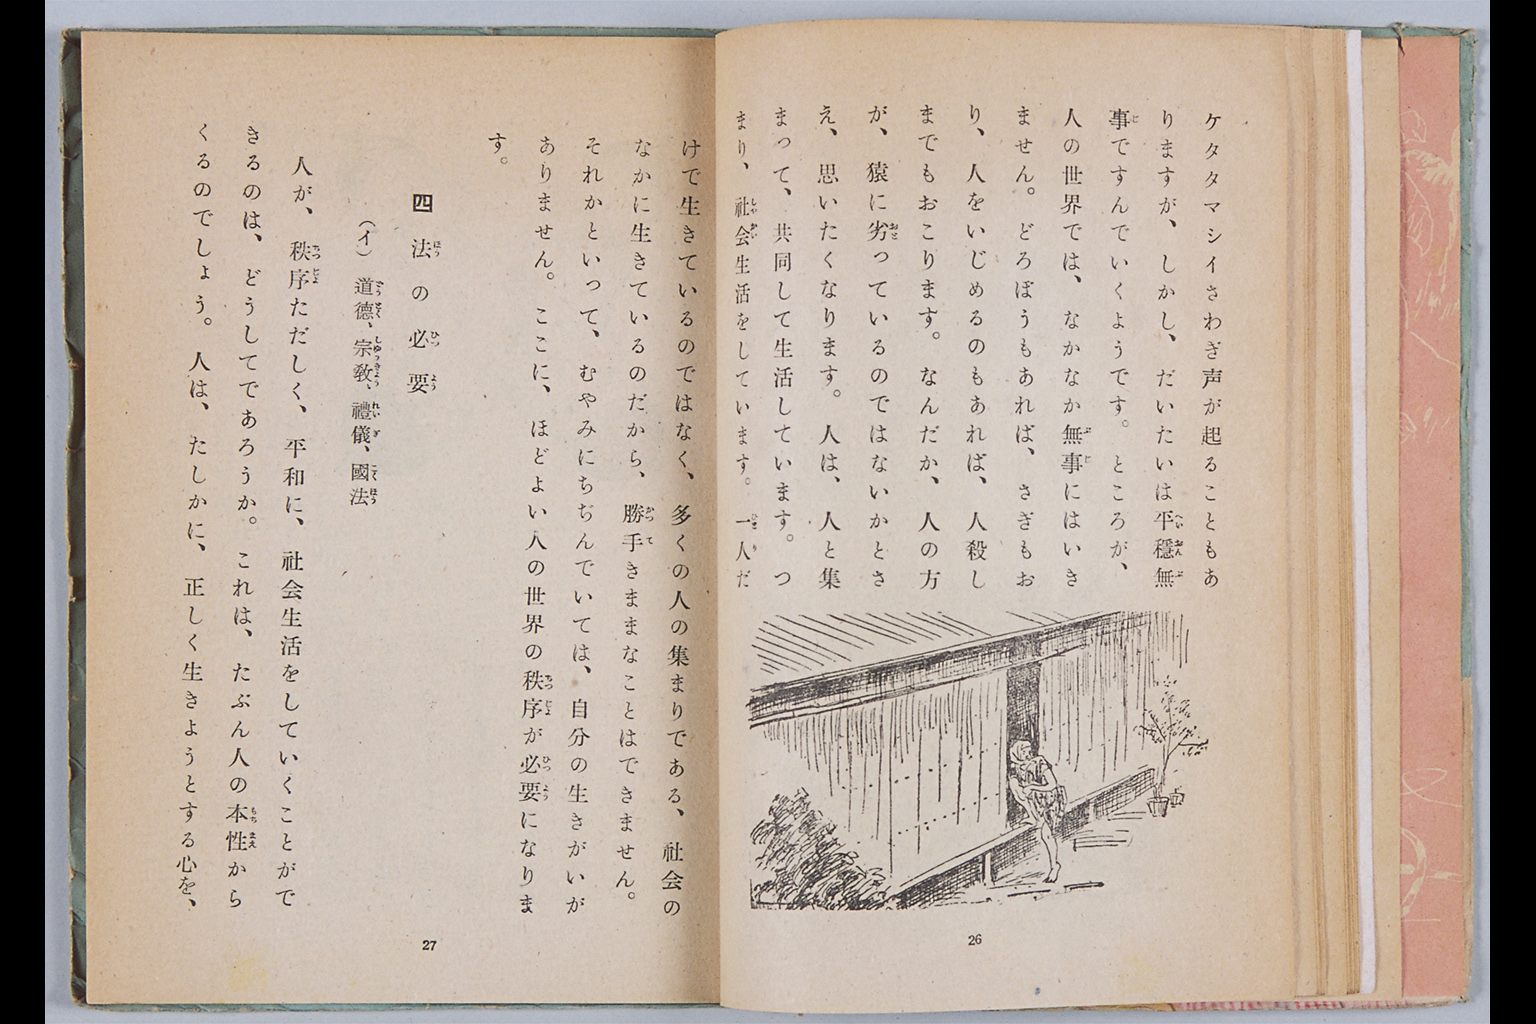 ケタタマシイさわぎ声が起ることもあ
りますが、しかし、だいたいは平穩無
事ですんでいくようです。ところが、
人の世界では、なかなか無事にはいき
ません。どろぼうもあれば、さぎもお
り、人をいじめるのもあれば、人殺し
までもおこります。なんだか、人の方
が、猿に劣っているのではないかとさ
え、思いたくなります。人は、人と集
まって、共同して生活しています。つ
まり、社会生活をしています。一人だ
26
けで生きているのではなく、多くの人の集まりである、社会の
なかに生きているのだから、勝手きままなことはできません。
それかといって、むやみにちぢんでいては、自分の生きがいが
ありません。ここに、ほどよい人の世界の秩序が必要になりま
す。
四 法の必要
(イ) 道德、宗教、禮儀、國法
人が、秩序ただしく、平和に、社会生活をしていくことがで
きるのは、どうしてであろうか。これは、たぶん人の本性から
くるのでしょう。人は、たしかに、正しく生きようとする心を、
27